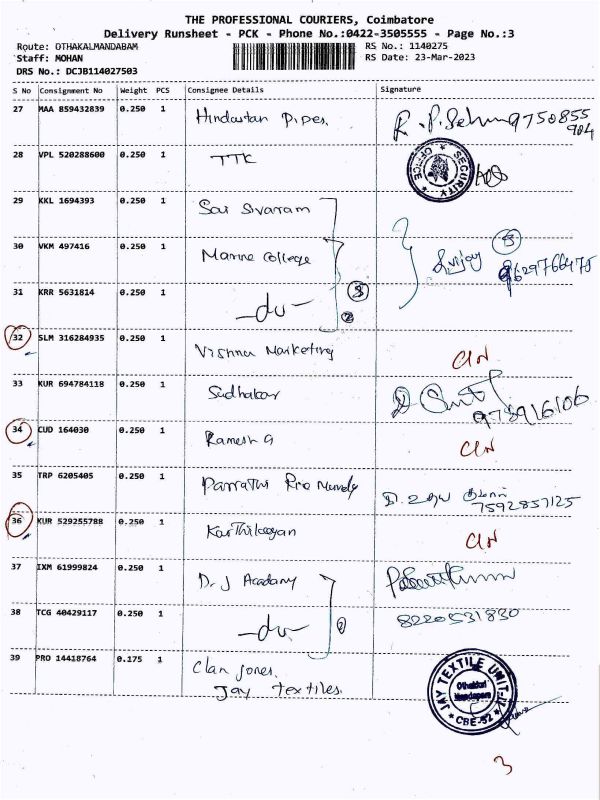 THE PROFESSIONAL COURIERS, Coimbatore
Delivery Runsheet - PCK - Phone No.:0422-3505555 - Page No.:3
Route: OTHAKALMANDABAM RS No.: 1140275
Staff: MOHAN RS Date: 23-Mar-2023
DRS No.: DCJB114027503
S No Consignment No Weight PCS Consignee Details Signature
27 MAA 859432839 0.250 1 Hindustan Pipes 9750855
904
28 VPL 520288600 0.250 1 TTK
OFFICE SECURITY
29 KKL 1694393 0.250 1 Sai Sivaram
30 VKM 497416 0.250 1 Marine College Svijay 5
9629766475
31 KRR 5631814 0.250 1 -do- 3
2
32 SLM 316284935 0.250 1 Vishnu Marketing CIN
33 KUR 694784118 0.250 1 Sudhakar
978916106
34 CUD 164030 0.250 1 Ramesh G CIN
35 TRP 6205405 0.250 1 Parrathi
7592857125
36 KUR 529255788 0.250 1 Karthikeyan CIN
37 IXM 61999824 0.250 1 Dr. J Acadamy
38 TCG 40429117 0.250 1 -do- 2 8220531830
39 PRO 14418764 0.175 1 Clan Jones.
Jay Textiles.
JAY TEXTILE UNIT-II
Othakkal
Mandapam
CBE-32
3